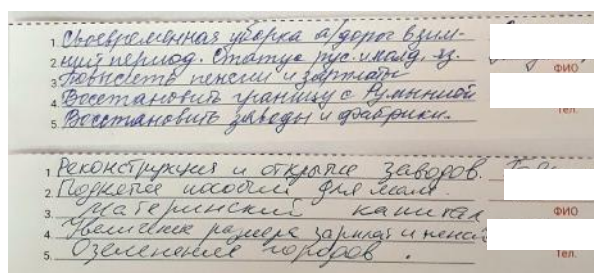 1. Своевременная уборка а/дорог в зим-
2. ний период. Статус рус. и молд. яз.
ФИО
3. Повысить пенсии и зарплаты
4. Восстановить границу с Румынией
Тел.
5. Восстановить заводы и фабрики.
1. Реконструкция и открытие заводов.
2. Поднятие пособий для мам.
3. материнский капитал
ФИО
4. Увеличение размера зарплат и пенсий
5. Озеленение городов.
Тел.